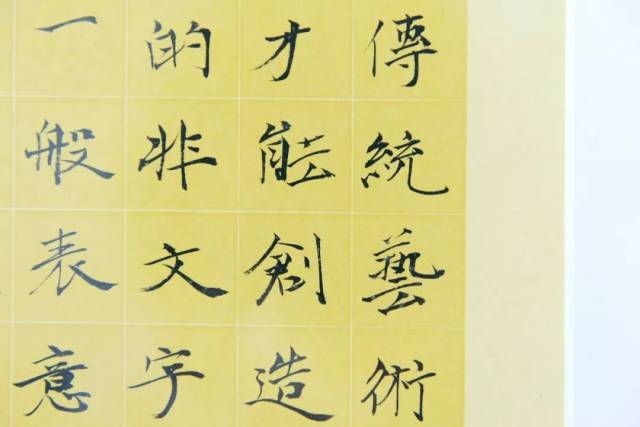 傳統藝術
才能創造
的非文字
一般表意